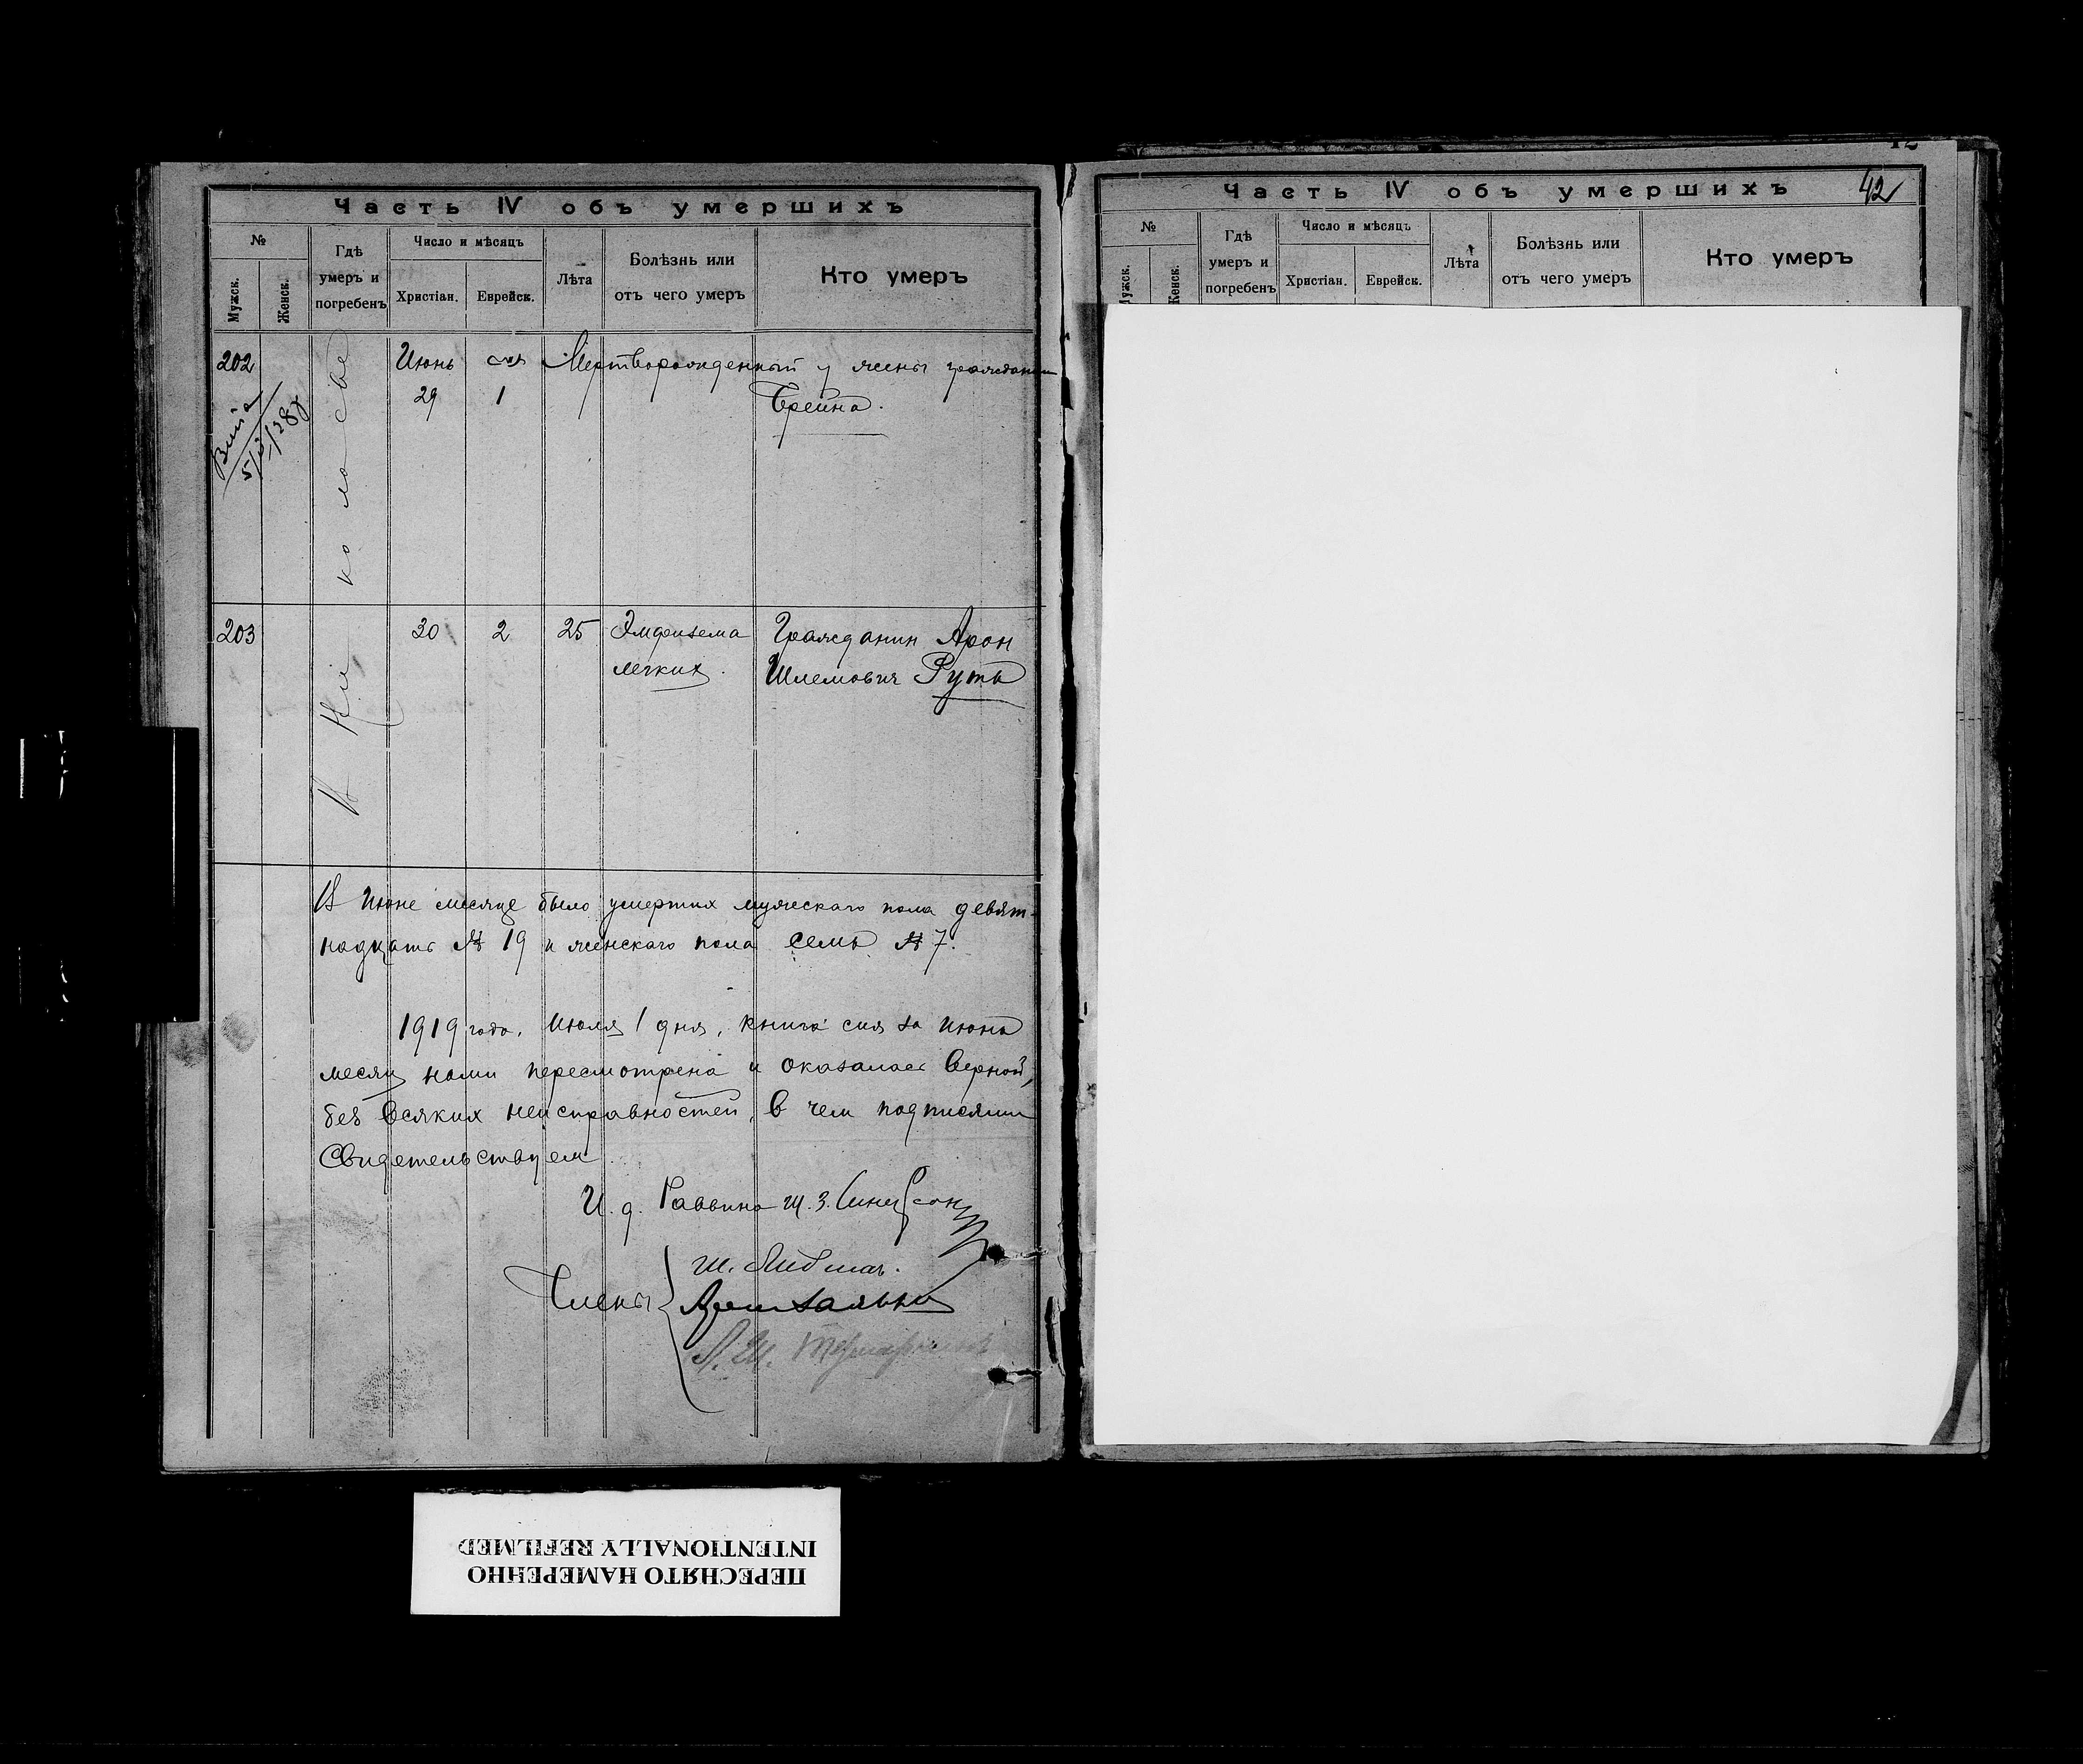 Часть IV объ умершихъ
№
Мужск.
Женск.
Гдѣ
умеръ и
погребенъ
Число и мѣсяцъ
Христіан.
Еврейск.
Лѣта
Болѣзнь или
отъ чего умеръ
Кто умеръ
В Николаеве
202
Июнь
29
1
Мертворожденный у жены гражданин
Брейна.
203
30
2
25
Эмфизема
легких.
Гражданин Арон
Шлемович Руть
В Июне месяце было умерших мужескаго пола девят-
надцать № 19 и женскаго пола семь № 7.
1919 года, Июля 1 дня, книга сия за Июнь
месяц нами пересмотрена и оказалась верной,
без всяких неисправностей, в чем подписями
свидетельствуем
И. д. Раввина Ш. З.
Члены
Ш.
Л. Ш.
Часть IV объ умершихъ
42
№
Мужск.
Женск.
Гдѣ
умеръ и
погребенъ
Число и мѣсяцъ
Христіан.
Еврейск.
Лѣта
Болѣзнь или
отъ чего умеръ
Кто умеръ
ПЕРЕСНЯТО НАМЕРЕННО
INTENTIONALLY REFILMED